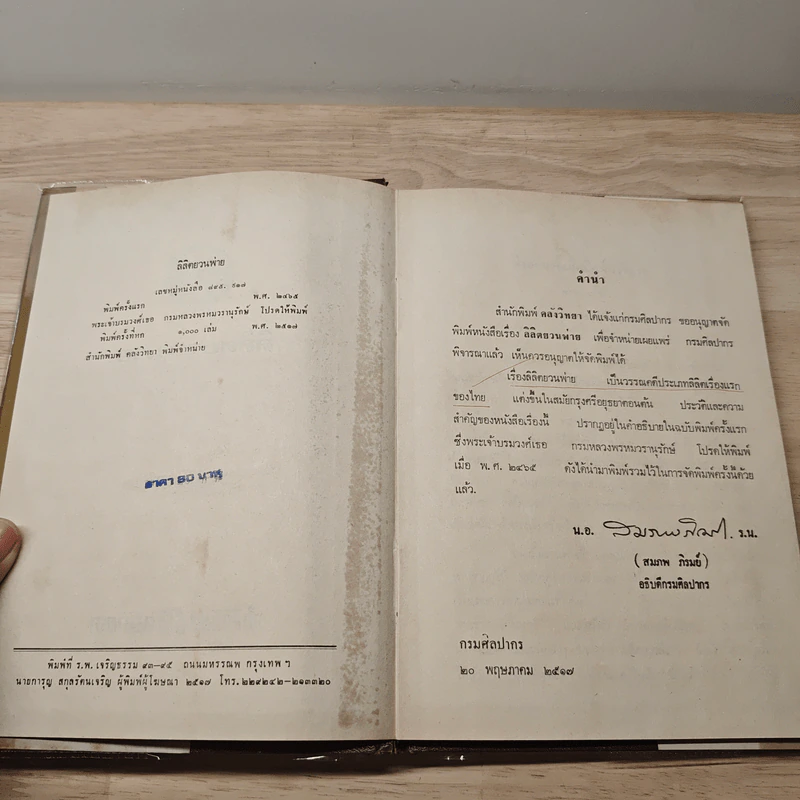 ลิลิตยวนพ่าย
เลขหมู่หนังสือ ๘๙๕. ๙๑๗
พิมพ์ครั้งแรก พ.ศ. ๒๔๖๕
พระเจ้าบรมวงศ์เธอ กรมหลวงพรหมวรานุรักษ์ โปรดให้พิมพ์
พิมพ์ครั้งที่หก ๑,๐๐๐ เล่ม พ.ศ. ๒๕๑๗
สำนักพิมพ์ คลังวิทยา พิมพ์จำหน่าย
ราคา ๘๐ บาท
พิมพ์ที่ ร.พ. เจริญธรรม ๙๓–๙๕ ถนนมหรรณพ กรุงเทพ ฯ
นายการุญ สกุลรัตนเจริญ ผู้พิมพ์ผู้โฆษณา ๒๕๑๗ โทร. ๒๒๙๒๔๒–๒๑๓๓๒๐
คำนำ
สำนักพิมพ์ คลังวิทยา ได้แจ้งแก่กรมศิลปากร ขออนุญาตจัด
พิมพ์หนังสือเรื่อง ลิลิตยวนพ่าย เพื่อจำหน่ายเผยแพร่ กรมศิลปากร
พิจารณาแล้ว เห็นควรอนุญาตให้จัดพิมพ์ได้
เรื่องลิลิตยวนพ่าย เป็นวรรณคดีประเภทลิลิตเรื่องแรก
ของไทย แต่งขึ้นในสมัยกรุงศรีอยุธยาตอนต้น ประวัติและความ
สำคัญของหนังสือเรื่องนี้ ปรากฏอยู่ในคำอธิบายในฉบับพิมพ์ครั้งแรก
ซึ่งพระเจ้าบรมวงศ์เธอ กรมหลวงพรหมวรานุรักษ์ โปรดให้พิมพ์
เมื่อ พ.ศ. ๒๔๖๕ ดังได้นำมาพิมพ์รวมไว้ในการจัดพิมพ์ครั้งนี้ด้วย
แล้ว.
น.อ. สมภพ ภิรมย์ ร.น.
( สมภพ ภิรมย์ )
อธิบดีกรมศิลปากร
กรมศิลปากร
๒๐ พฤษภาคม ๒๕๑๗